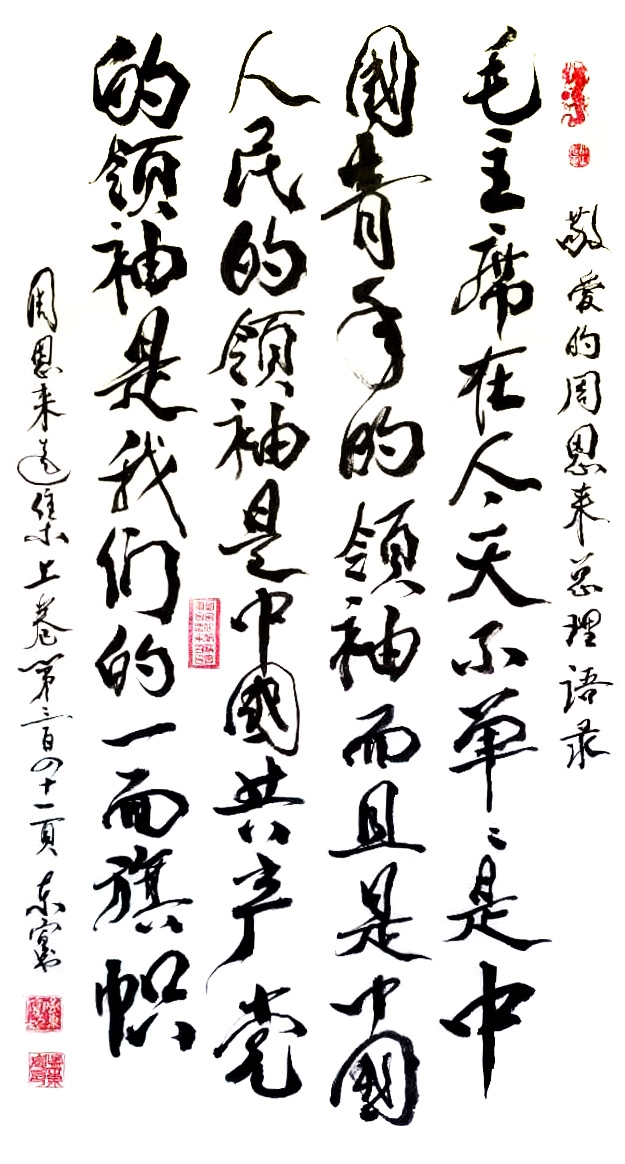 敬爱的周恩来总理语录
毛主席在今天不单〻是中
國青年的领袖而且是中國
人民的领袖是中國共产党
的领袖是我们的一面旗帜
周恩来选集上卷第三百四十一页 东